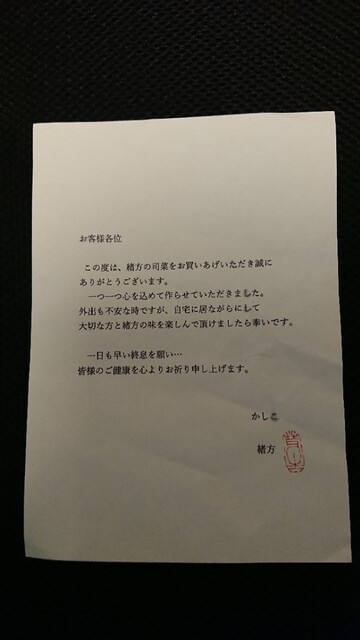 お客様各位
この度は、緒方の司菜をお買いあげいただき誠に
ありがとうございます。
一つ一つ心を込めて作らせていただきました。
外出も不安な時ですが、自宅に居ながらにして
大切な方と緒方の味を楽しんで頂けましたら幸いです。
一日も早い終息を願い…
皆様のご健康を心よりお祈り申し上げます。
かしこ
緒方